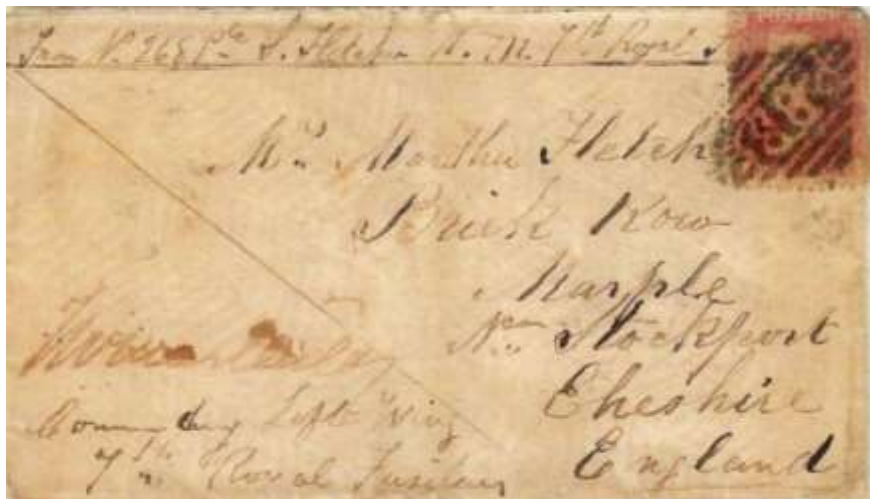 From No. 268 Pte S. Fletcher 7th Royal
Mrs. Martha Fletch
Brick Row
Marple
Nr. Stockport
Cheshire
England
Commanding Left Wing
7th Royal Fusiliers